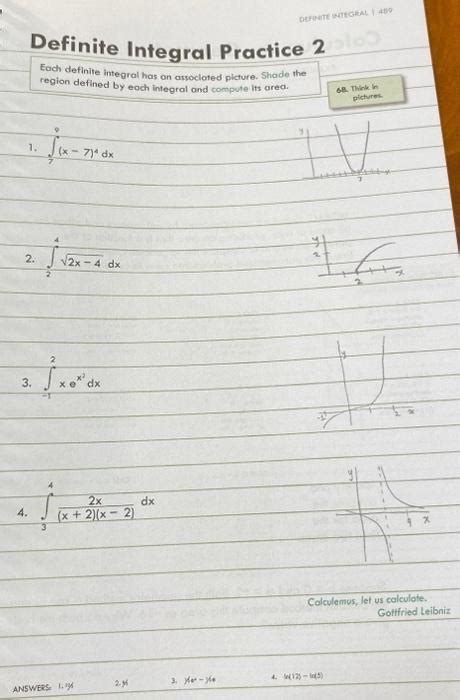 DEFINITE INTEGRAL | 489
Definite Integral Practice 2
Each definite integral has an associated picture. Shade the
region defined by each integral and compute its area.
68. Think in
pictures.
1. ∫₇⁹ (x − 7)⁴ dx
y
7
2. ∫₂⁴ √2x − 4 dx
y
2
2 x
3. ∫₋₁² x eˣ² dx
y
-1 1 2 x
4. ∫₃⁴ 2x / (x + 2)(x − 2) dx
y
4 x
Calculemus, let us calculate.
Gottfried Leibniz
ANSWERS: 1. 2. 3. 4. ln(12) − ln(5)